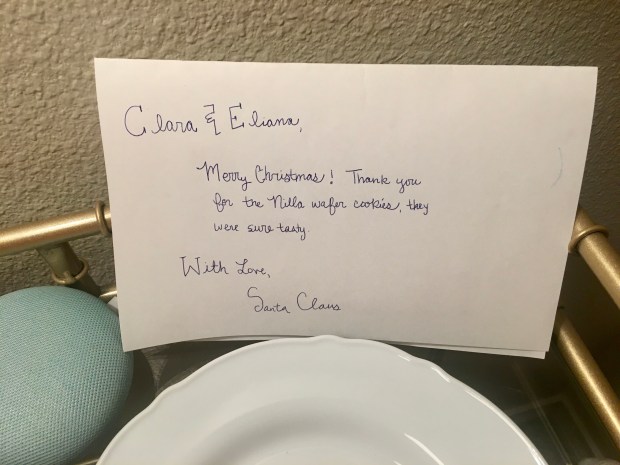 Clara & Eliana,
Merry Christmas! Thank you
for the Nilla wafer cookies, they
were sure tasty.
With Love,
Santa Claus